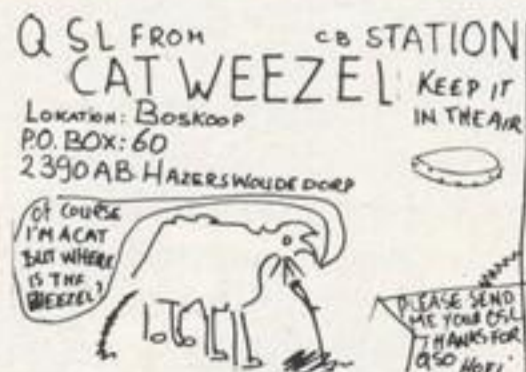 QSL FROM CB STATION
CAT WEEZEL
KEEP IT
IN THE AIR
LOKATION: BOSKOOP
P.O. BOX: 60
2390 AB HAZERSWOUDE DORP
OF COURSE
I'M A CAT
BUT WHERE
IS THE
WEEZEL?
PLEASE SEND
ME YOUR QSL
THANKS FOR
QSO